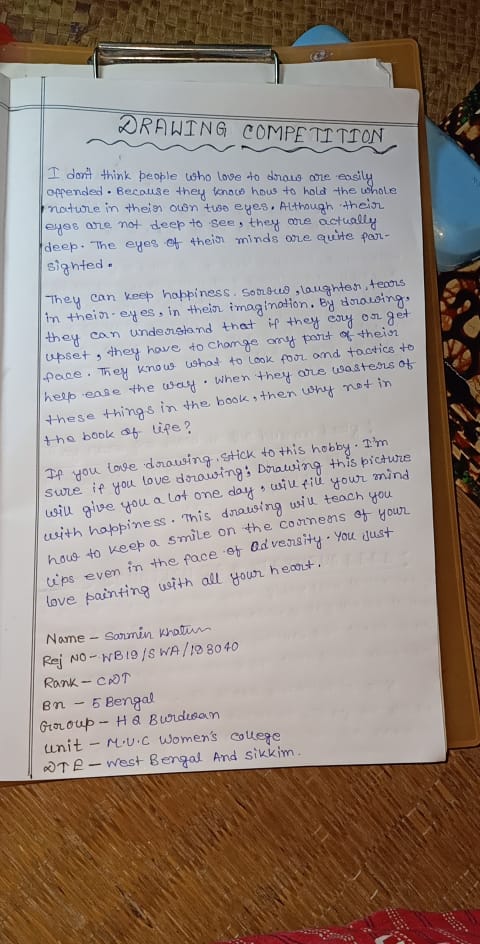 DRAWING COMPETITION
I don't think people who love to draw are easily
offended. Because they know how to hold the whole
nature in their own two eyes. Although their
eyes are not deep to see, they are actually
deep. The eyes of their minds are quite far-
sighted.
They can keep happiness. Sorrow, laughter, tears
in their eyes, in their imagination. By drawing,
they can understand that if they cry or get
upset, they have to change any part of their
face. They know what to look for and tactics to
help ease the way. When they are wasters of
these things in the book, then why not in
the book of life?
If you love drawing, stick to this hobby. I'm
sure if you love drawing; Drawing this picture
will give you a lot one day, will fill your mind
with happiness. This drawing will teach you
how to keep a smile on the corners of your
lips even in the face of adversity. You just
love painting with all your heart.
Name - Sarmin Khatun
Rej NO - WB19/SWA/193040
Rank - CDT
Bn - 5 Bengal
Group - HQ Burdwan
Unit - M.U.C Women's College
DTE - West Bengal And Sikkim.